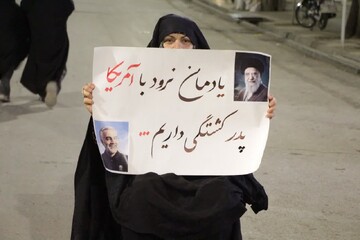 یادمان نرود با آمریکا
پدر کشتگی داریم ...